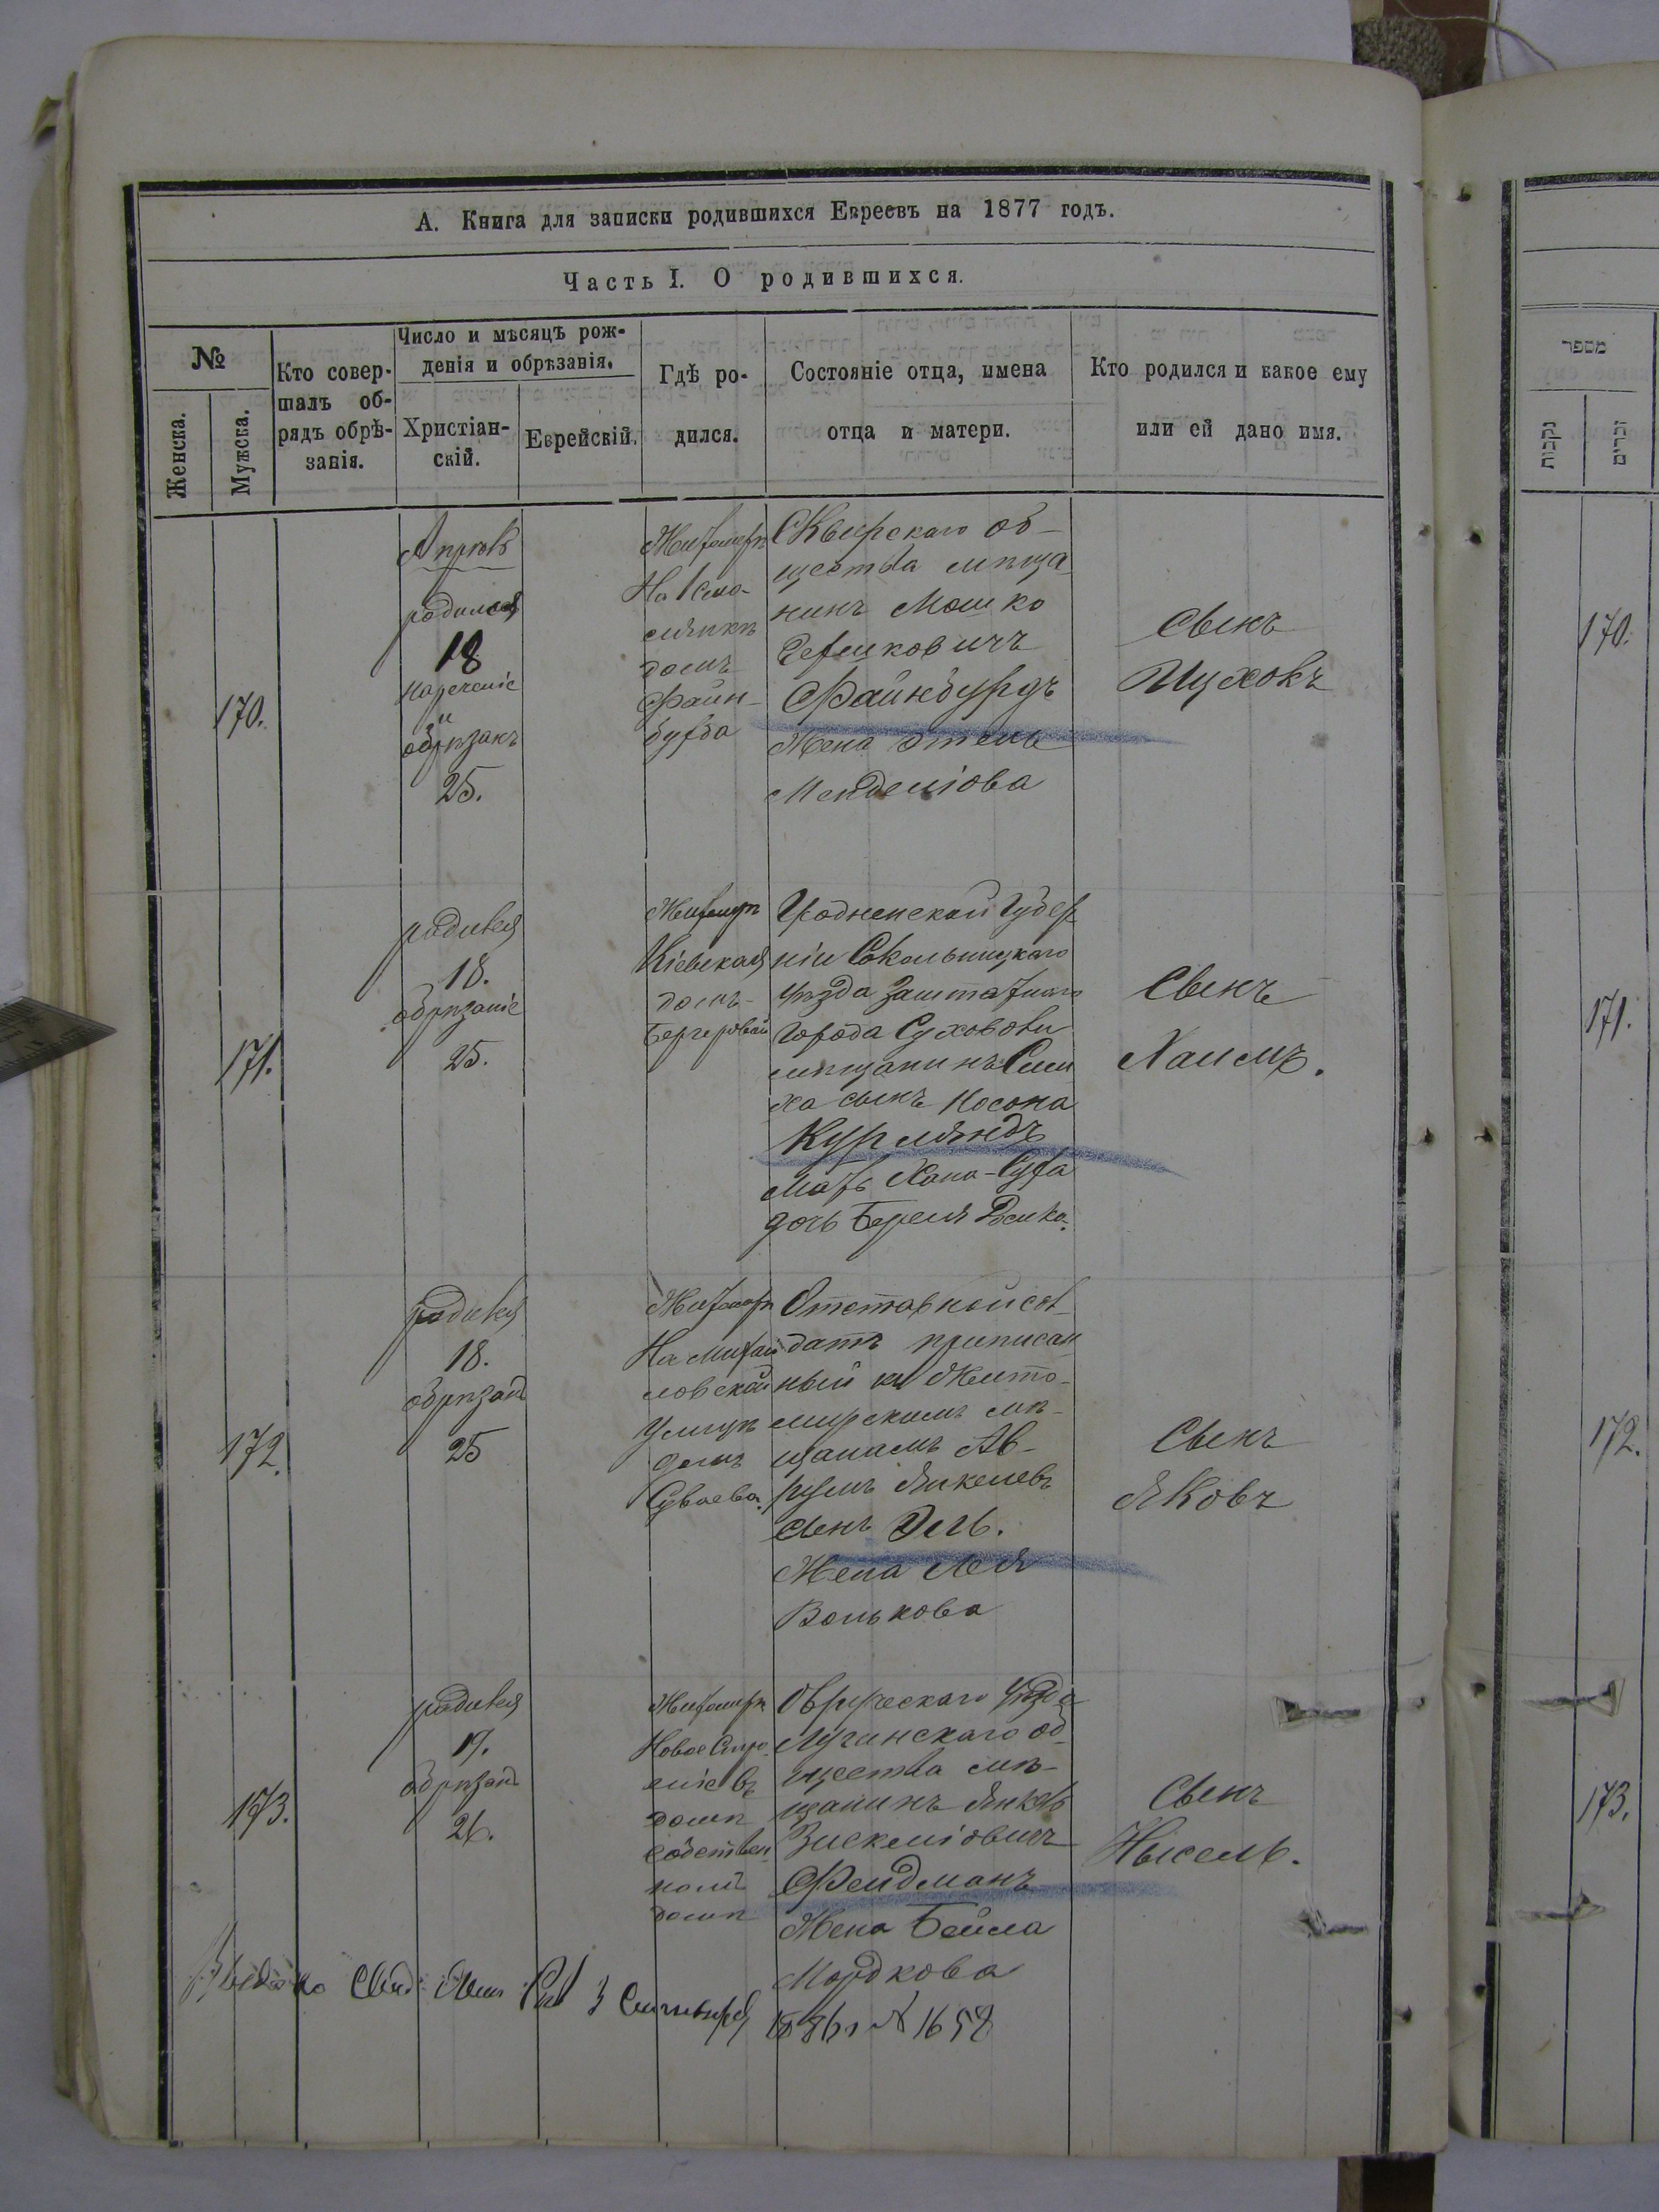 А. Книга для записки родившихся Евреевъ на 1877 годъ.
Часть I. О родившихся.
№
Женска.
Мужска.
Кто совер-
шалъ об-
рядъ обрѣ-
занія.
Число и мѣсяцъ рож-
денія и обрѣзанія.
Христіан-
скій.
Еврейскій.
Гдѣ ро-
дился.
Состояніе отца, имена
отца и матери.
Кто родился и какое ему
или ей дано имя.
170.
Апрѣль
родился
18
нареченіе
и
обрѣзанъ
25.
Житомірѣ
домъ
Файн-
бурга
Сквирскаго об-
щества мѣща
нинъ Мошко
Гершковичъ
Файнбургъ
Жена Этель
Менделіова
Сынъ
Ицхокъ
171.
родился
18.
обрѣзаніе
25.
Житомірѣ
Кіевская
домъ
Гродненской Губер
ніи Сокольницкаго
уѣзда заштатнаго
города Суховоли
мѣщанинъ Сим
ха сынъ Носона
Курляндъ
Мать Хана-Сура
дочь Береля
Сынъ
Хаимъ.
172.
родился
18.
обрѣзанъ
25
Житомірѣ
На Михай
ловской
улицѣ
домъ
Отставной сол
датъ приписан
ный къ Жито-
мирскимъ мѣ-
щанамъ Ав-
румъ Янкелевъ
сынъ
Жена Лея
Волькова
Сынъ
Яковъ
173.
родился
19.
обрѣзанъ
26.
Житомірѣ
Новое Стро-
еніе въ
домѣ
собствен-
номъ
домѣ
Овручскаго уѣзда
Лугинскаго об-
щества мѣ-
щанинъ Янкель
Зискеліовичъ
Фельдманъ
Жена Бейла
Мордкова
Сынъ
Нысель.
Выдано Свид. 3 Сентября 1886 г № 1658
מספר
נקבות
זכרים
170.
171.
172.
173.